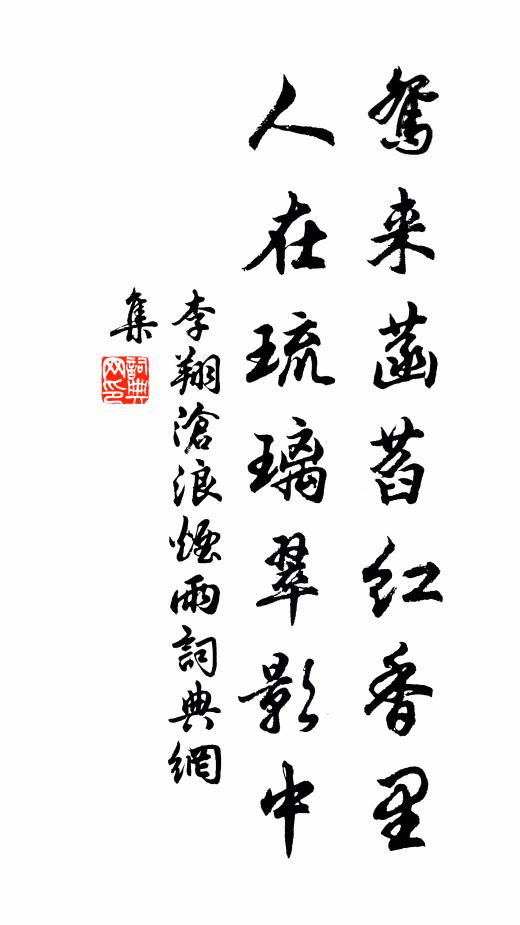 鴛来菡萏红香里
人在琉璃翠影中
李翔滄浪煙雨詞典網
集
詞典
网印